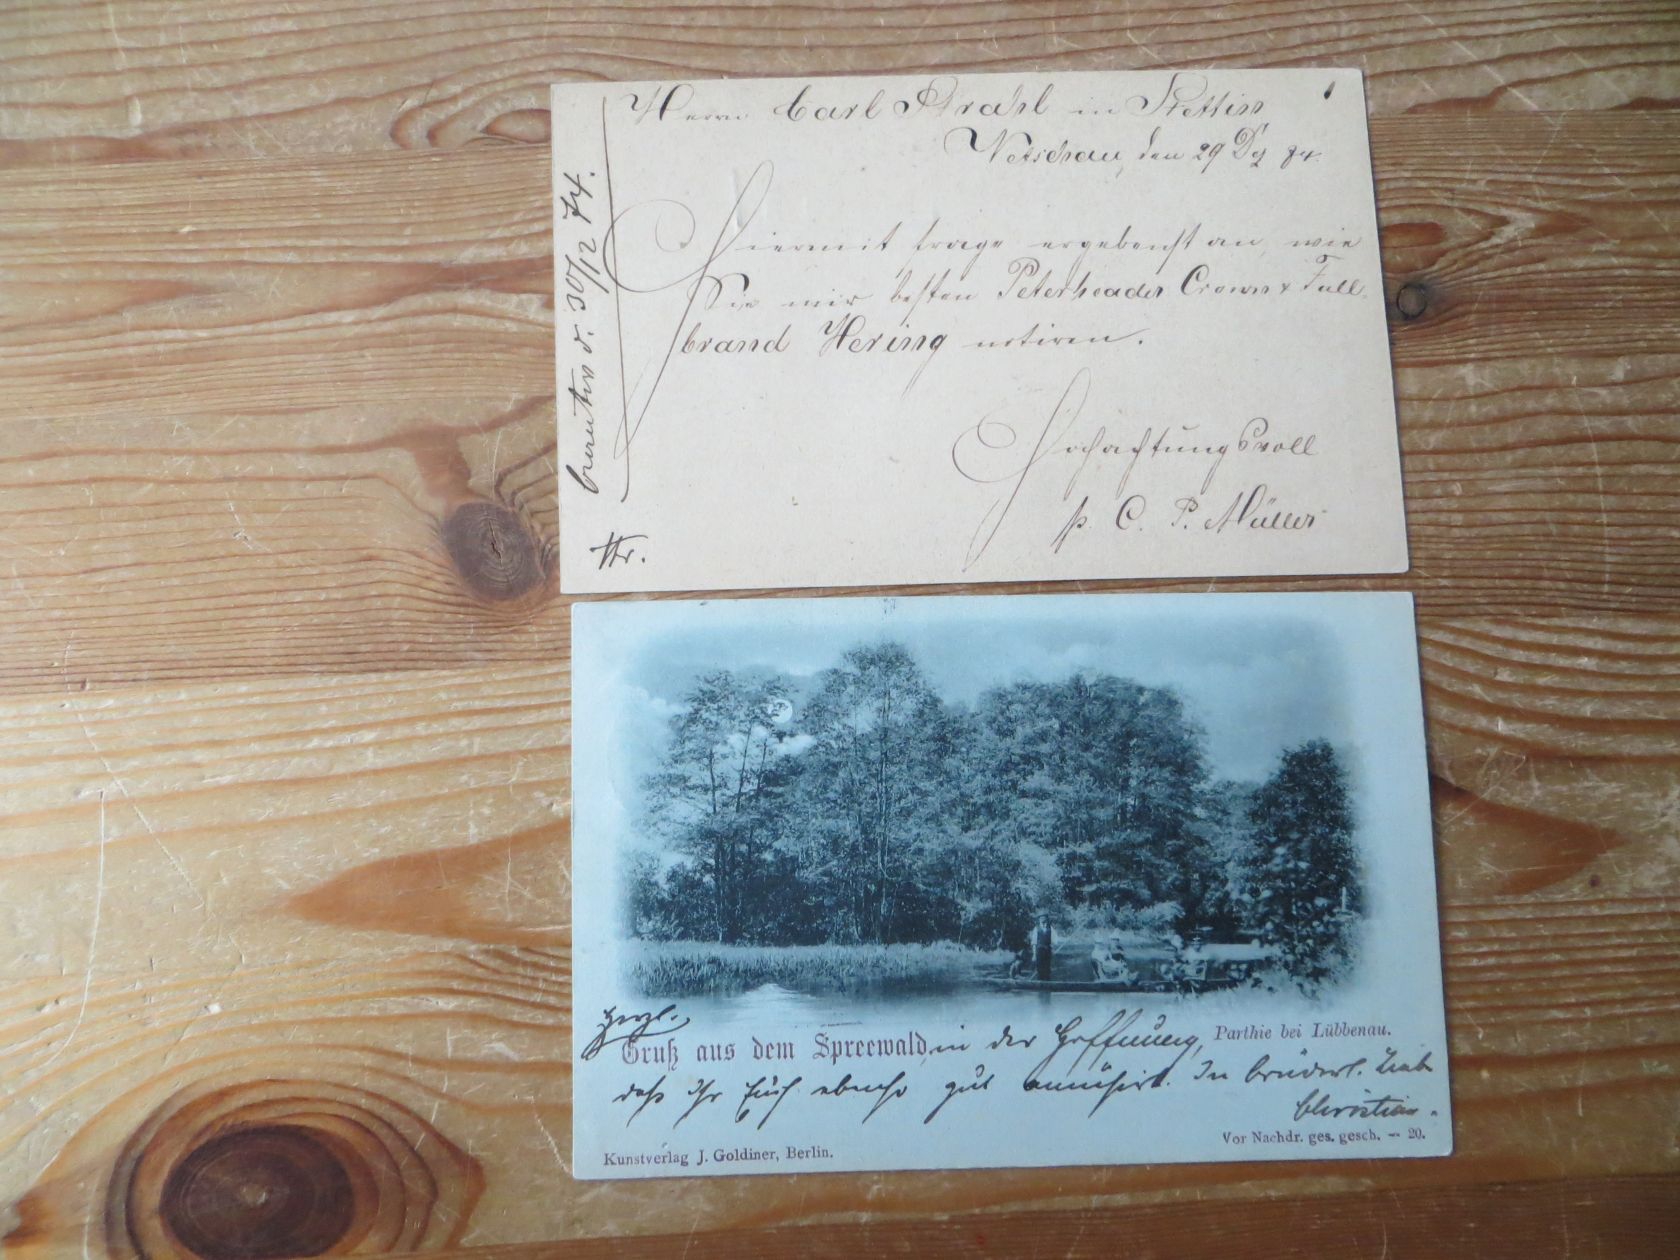 Herrn Carl Strahl in Stettin
Vetschau, den 29 Dez 74.
Hiermit frage ergebenst an, wie
Sie mir besten Peterheader Crown & Full-
brand Hering notiren.
Hochachtungsvoll
p. C. P. Müller
30/12 74.
Herzl.
Gruß aus dem Spreewald, in der Hoffnung, Parthie bei Lübbenau.
daß ihr Euch ebenso gut amüsirt. In brüderl. Liebe
Christian.
Vor Nachdr. ges. gesch. — 20.
Kunstverlag J. Goldiner, Berlin.